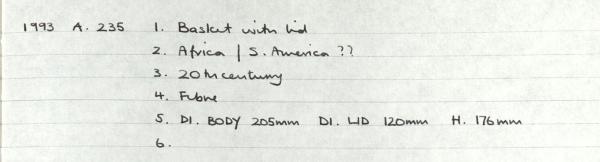 1993 A. 235 1. Basket with lid
2. Africa | S. America ??
3. 20th century
4. Fibre
5. DI. BODY 205mm DI. LID 120mm H. 176mm
6.